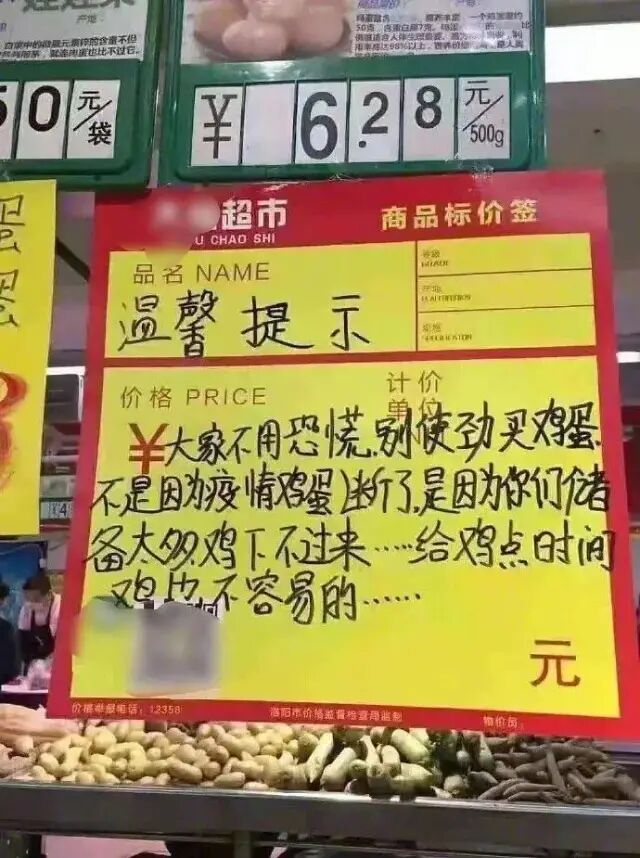 50 元/袋
¥ 6.28 元/500g
超市
U CHAO SHI
商品标价签
品名 NAME
温馨提示
价格 PRICE
计价
单位
¥
大家不用恐慌,别使劲买鸡蛋,
不是因为疫情鸡蛋断了,是因为你们储
备太多,鸡下不过来……给鸡点时间
鸡也不容易的……
元
价格举报电话:12358
洛阳市价格监督检查局监制
物价员: